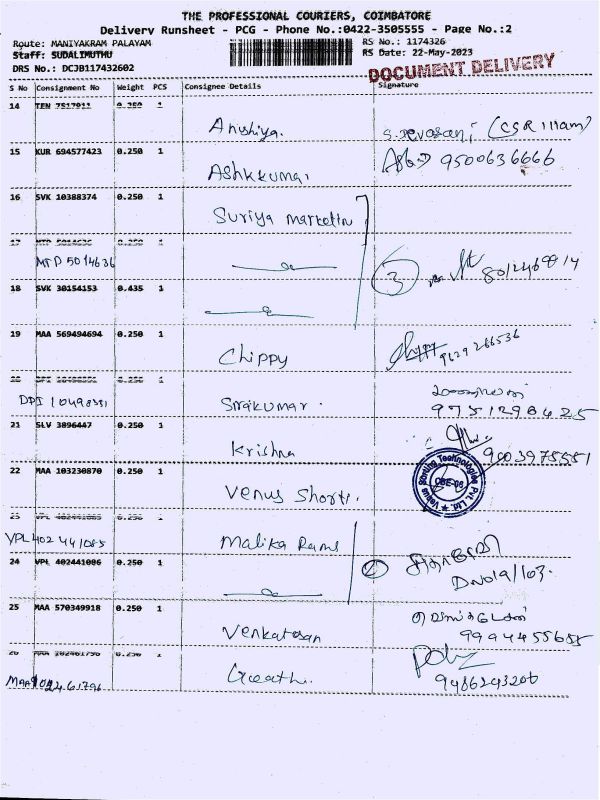 THE PROFESSIONAL COURIERS, COIMBATORE
Delivery Runsheet - PCG - Phone No.:0422-3505555 - Page No.:2
Route: MANIYAKRAM PALAYAM RS No.: 1174326
Staff: SUDALIMUTHU RS Date: 22-May-2023
DRS No.: DCJB117432602 DOCUMENT DELIVERY
S No Consignment No Weight PCS Consignee Details Signature
14 TEN 7517911 0.250 1
Anushiya. (CSR illam)
15 KUR 694577423 0.250 1 9500636666
Ashkkumar
16 SVK 10388374 0.250 1
Suriya Marketin
17 MTP 5014636 0.250 1
MTP 5014636 3
18 SVK 30154153 0.435 1
19 MAA 569494694 0.250 1 9629266536
Chippy
20 DPI 10498331 0.250 1
DPI 10498331 Sivakumar. 9751298425
21 SLV 3896447 0.250 1
Krishna 9003975551
22 MAA 103230870 0.250 1 Venus Sorting Technologies Pvt. Ltd. CBE-06
Venus Shorti.
23 VPL 402441085 0.250 1
VPL 402441085 Malika Rams 2
24 VPL 402441086 0.250 1 D.No 19/103.
25 MAA 570349918 0.250 1
Venkatesan 9994455655
26 MAA 102461796 0.250 1
MAA 102461796 Geeth. 9486293206